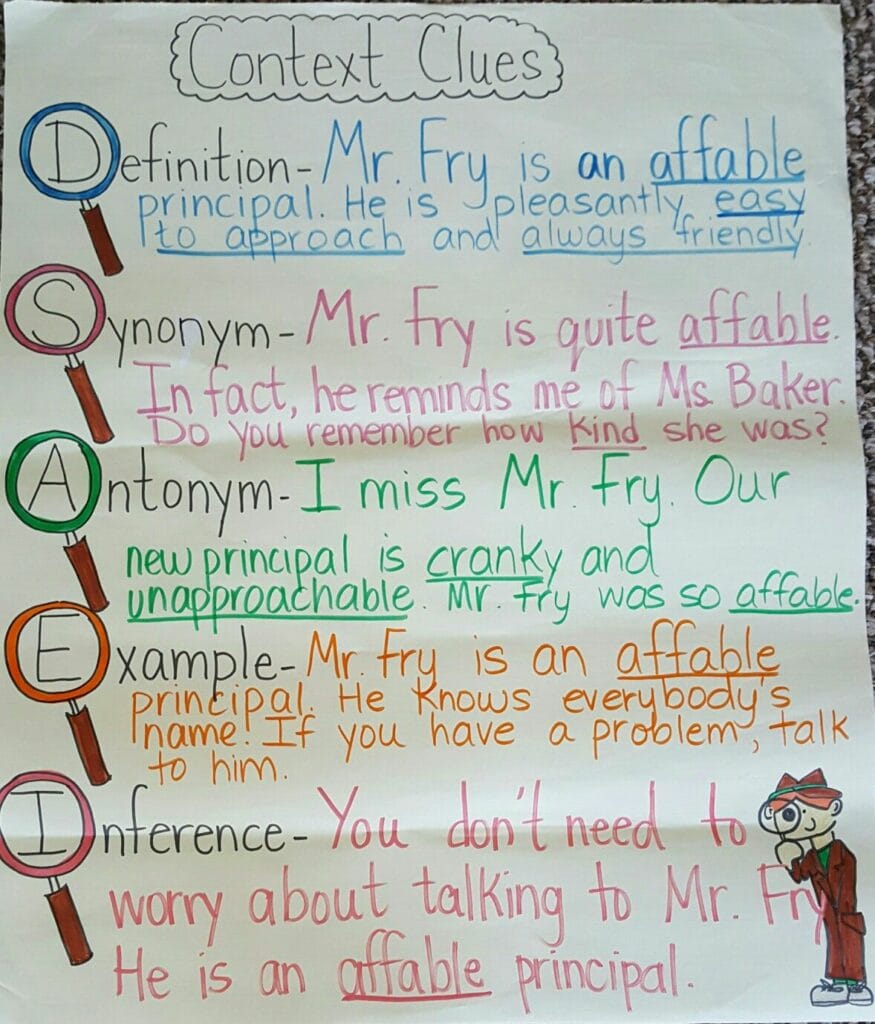 Context Clues
Definition- Mr. Fry is an affable
principal. He is pleasantly easy
to approach and always friendly
Synonym- Mr. Fry is quite affable.
In fact, he reminds me of Ms. Baker.
Do you remember how kind she was?
Antonym- I miss Mr. Fry. Our
new principal is cranky and
unapproachable. Mr. Fry was so affable.
Example- Mr. Fry is an affable
principal. He knows everybody's
name! If you have a problem, talk
to him.
Inference- You don't need to
worry about talking to Mr. Fry
He is an affable principal.